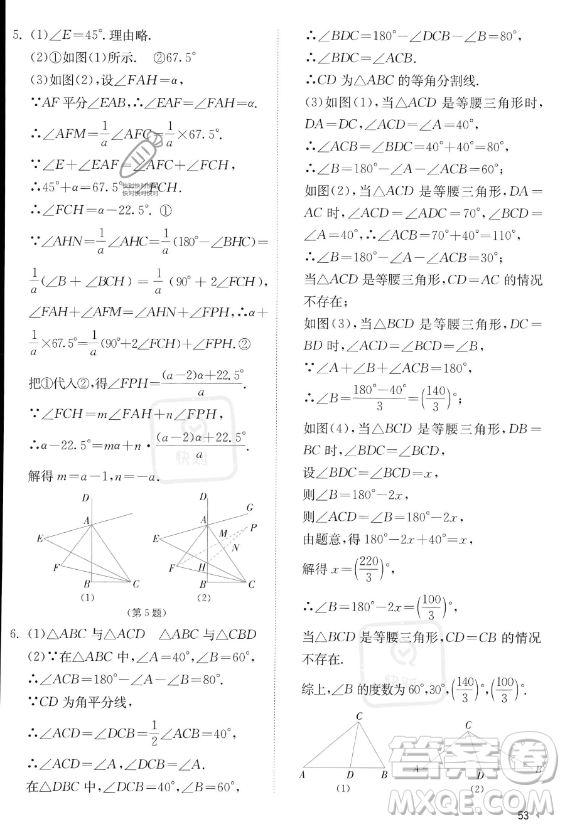 5. (1)∠E=45°. 理由略.
(2)①如图(1)所示. ②67.5°
(3)如图(2),设∠FAH=α,
∵AF平分∠EAB,∴∠EAF=∠FAH=α.
∴∠AFM=1/a∠AFC=1/a×67.5°.
∵∠E+∠EAF=∠AFC+∠FCH,
∴45°+α=67.5°+∠FCH.
∴∠FCH=α-22.5°. ①
∵∠AHN=1/a∠AHC=1/a(180°-∠BHC)=
1/a(∠B+∠BCH)=1/a(90°+2∠FCH),
∠FAH+∠AFM=∠AHN+∠FPH,∴α+
1/a×67.5°=1/a(90°+2∠FCH)+∠FPH.②
把①代入②得∠FPH=(a-2)α+22.5°/a.
∵∠FCH=m∠FAH+n∠FPH,
∴α-22.5°=mα+n·(a-2)α+22.5°/a.
解得m=a-1,n=-a.
D
A
E
F
B
C
(1)
D
G
A
M
P
E
N
F
H
B
C
(2)
(第5题)
6. (1)△ABC与△ACD △ABC与△CBD
(2)∵在△ABC中,∠A=40°,∠B=60°,
∴∠ACB=180°-∠A-∠B=80°.
∵CD为角平分线,
∴∠ACD=∠DCB=1/2∠ACB=40°.
∴∠ACD=∠DCB=∠A.
在△DBC中,∠DCB=40°,∠B=60°,
∴∠BDC=180°-∠DCB-∠B=80°.
∴∠BDC=∠ACB.
∴CD为△ABC的等角分割线.
(3)如图(1),当△ACD是等腰三角形时,
DA=DC,∠ACD=∠A=40°,
∴∠ACB=∠BDC=40°+40°=80°.
∴∠B=180°-40°-80°=60°;
如图(2),当△ACD是等腰三角形,DA=
AC时,∠ACD=∠ADC=70°,∠BCD=
∠A=40°,∴∠ACB=70°+40°=110°.
∴∠B=180°-40°-110°=30°;
当△ACD是等腰三角形,CD=AC的情况
不存在;
如图(3),当△BCD是等腰三角形,DC=
BD时,∠ACD=∠BCD=∠B,
∵∠A+∠B+∠ACB=180°,
∴∠B=180°-40°/3=(140/3)°;
如图(4),当△BCD是等腰三角形,DB=
BC时,∠BDC=∠BCD,
设∠BDC=∠BCD=x,
则∠B=180°-2x,
则∠ACD=∠B=180°-2x,
由题意,得180°-2x+40°=x,
解得x=(220/3)°,
∴∠B=180°-2x=(100/3)°;
当△BCD是等腰三角形,CD=CB的情况
不存在.
综上,∠B的度数为60°,30°,(140/3)°,(100/3)°.
C
A
D
B
(1)
C
A
D
B
(2)
答案圈
MXQE.COM
快对
53